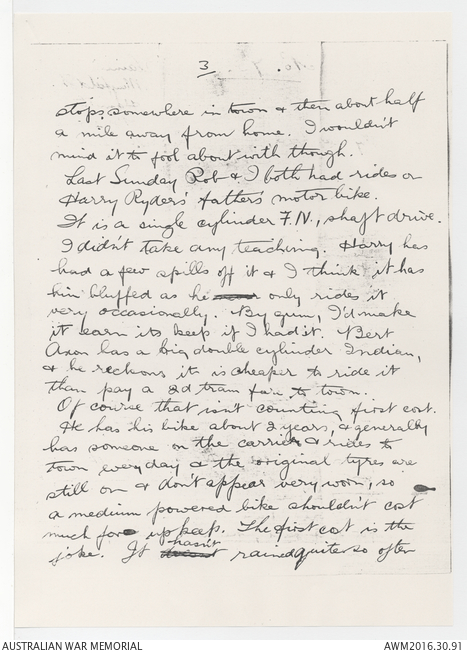 3
stops somewhere in town & then about half
a mile away from home. I wouldn't
mind it to fool about with though.
Last Sunday Rob & I both had rides on
Harry Ryders' father's motor bike.
It is a single cylinder F.N., shaft drive.
I didn't take any teaching. Harry has
had a few spills off it & I think it has
him bluffed as he only rides it
very occasionally. By gum, I'd make
it earn its keep if I had it. Bert
Axon has a big double cylinder Indian,
& he reckons it is cheaper to ride it
than pay a 2d tram fare to town.
Of course that isn't counting first cost.
He has his bike about 2 years, & generally
has someone on the carrier & rides to
town everyday & the original tyres are
still on & don't appear very worn, so
a medium powered bike shouldn't cost
much for upkeep. The first cost is the
joke. It hasn't rained quite so often
AUSTRALIAN WAR MEMORIAL
AWM2016.30.91